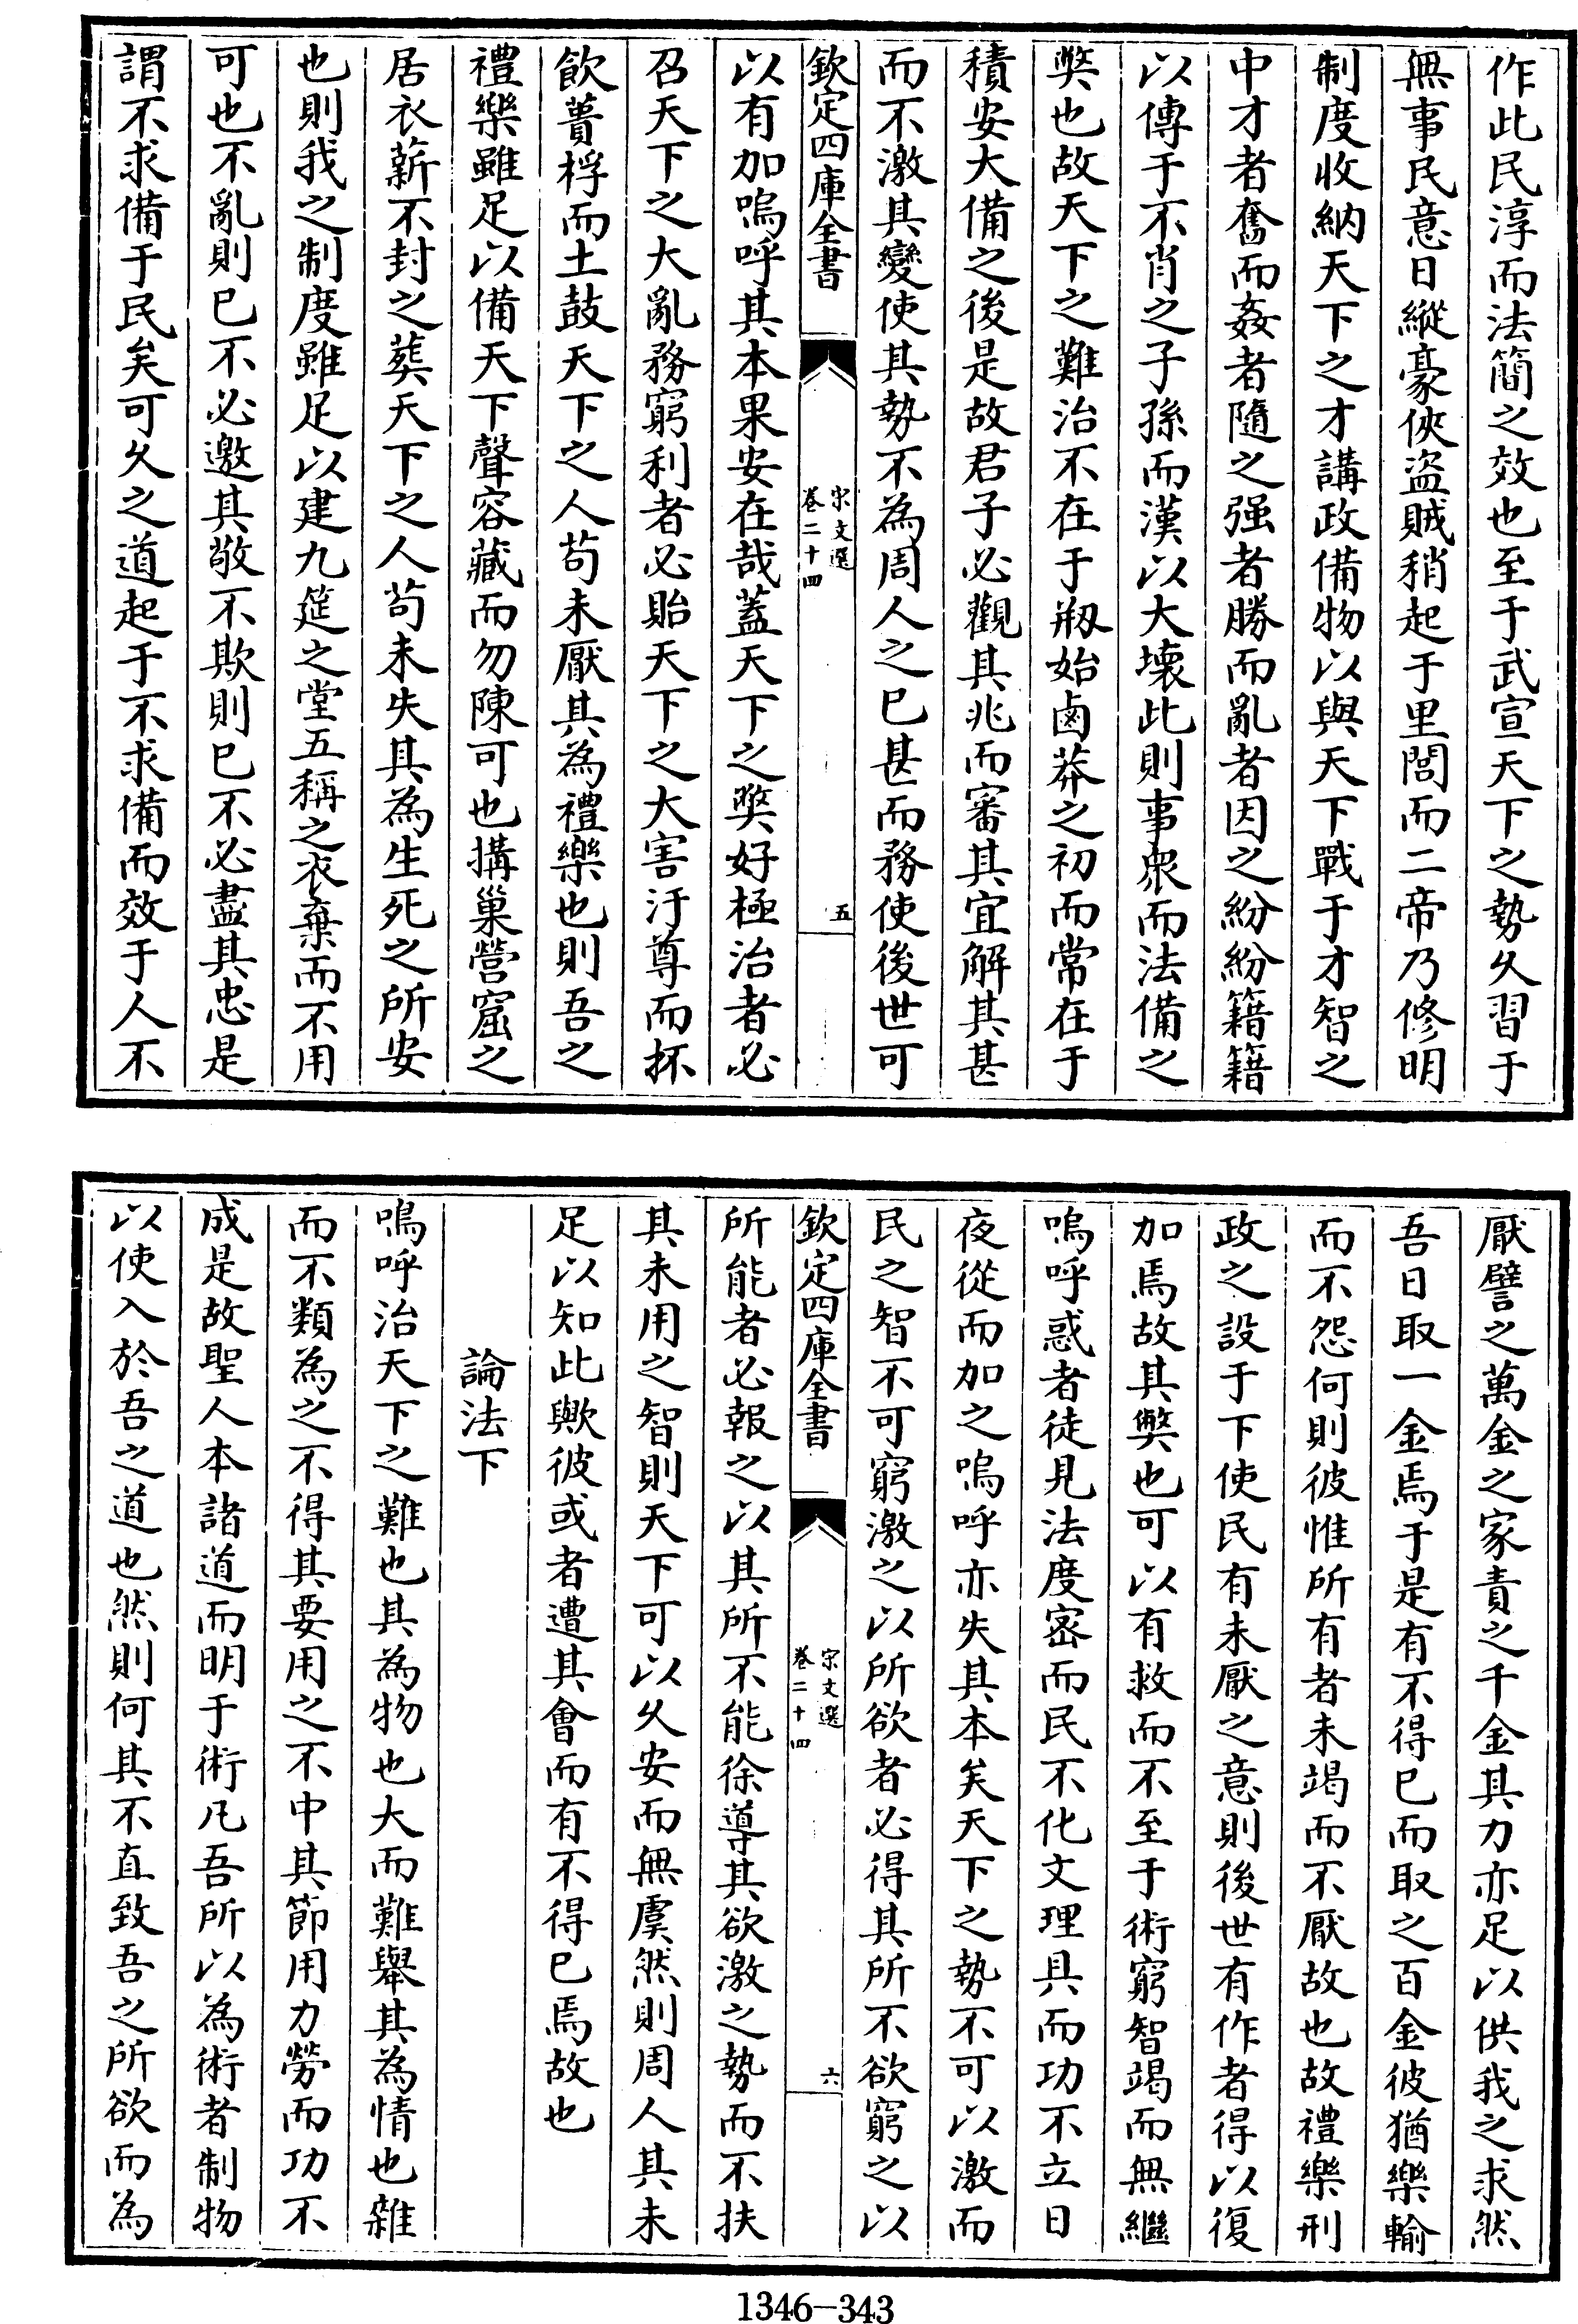 作此民淳而法簡之效也至于武宣天下之勢久習于
無事民意日縱豪俠盜賊稍起于里閭而二帝乃修明
制度收納天下之才講政備物以與天下戰于才智之
中才者奮而姦者隨之强者勝而亂者因之紛紛籍籍
以傳于不肖之子孫而漢以大壞此則事衆而法備之
弊也故天下之難治不在于剏始鹵莽之初而常在于
積安大備之後是故君子必觀其兆而審其宜解其甚
而不激其變使其勢不為周人之已甚而務使後世可
欽定四庫全書
宋文選
卷二十四
五
以有加嗚呼其本果安在哉蓋天下之弊好極治者必
召天下之大亂務窮利者必貽天下之大害汙尊而抔
飲蕢桴而土鼓天下之人苟未厭其為禮樂也則吾之
禮樂雖足以備天下聲容藏而勿陳可也搆巢營窟之
居衣薪不封之葬天下之人苟未失其為生死之所安
也則我之制度雖足以建九筵之堂五稱之衣棄而不用
可也不亂則已不必邀其敬不欺則已不必盡其忠是
謂不求備于民矣可久之道起于不求備而效于人不
厭譬之萬金之家責之千金其力亦足以供我之求然
吾日取一金焉于是有不得已而取之百金彼猶樂輸
而不怨何則彼惟所有者未竭而不厭故也故禮樂刑
政之設于下使民有未厭之意則後世有作者得以復
加焉故其弊也可以有救而不至于術窮智竭而無繼
嗚呼惑者徒見法度密而民不化文理具而功不立日
夜從而加之嗚呼亦失其本矣天下之勢不可以激而
民之智不可窮激之以所欲者必得其所不欲窮之以
欽定四庫全書
宋文選
卷二十四
六
所能者必報之以其所不能徐導其欲激之勢而不扶
其未用之智則天下可以久安而無虞然則周人其未
足以知此歟彼或者遭其會而有不得已焉故也
論法下
嗚呼治天下之難也其為物也大而難舉其為情也雜
而不類為之不得其要用之不中其節用力勞而功不
成是故聖人本諸道而明于術凡吾所以為術者制物
以使入於吾之道也然則何其不直致吾之所欲而為
1346—343